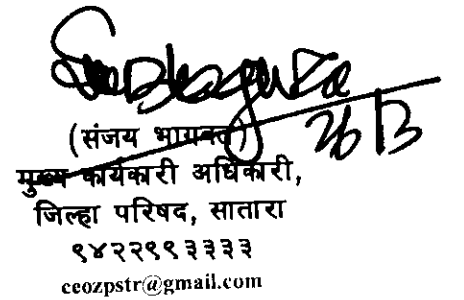 26/3
(संजय भागवत)
मुख्य कार्यकारी अधिकारी,
जिल्हा परिषद, सातारा
९४२२९९३३३३
ceozpstr@gmail.com